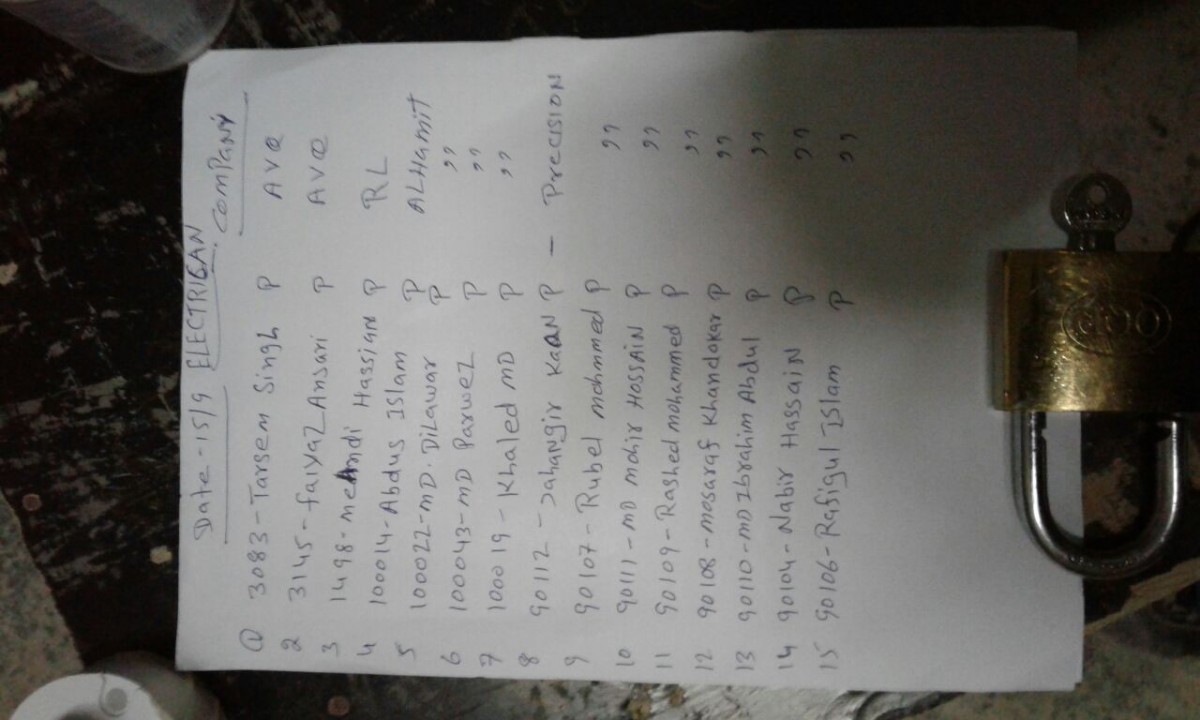 Date - 15/9 ELECTRICAN COMPANY
① 3083 - Tarsem Singh P AVQ
2 3145 - faiyaz Ansari P AVQ
3 1498 - mehndi Hassian P RL
4 100014 - Abdus Islam P ALHamit
5 100022 - mD. Dilawar P ,,
6 100043 - mD Parwez P ,,
7 100019 - Khaled mD P ,,
8 90112 - Jahangir KaAN P - Precision
9 90107 - Rubel mohmmed P ,,
10 90111 - mD mohir HossAiN P ,,
11 90109 - Rashed mohammed P ,,
12 90108 - mosaraf Khandokar P ,,
13 90110 - mD Ibrahim Abdul P ,,
14 90104 - Nabir HassaiN P ,,
15 90106 - Rafigul Islam P ,,